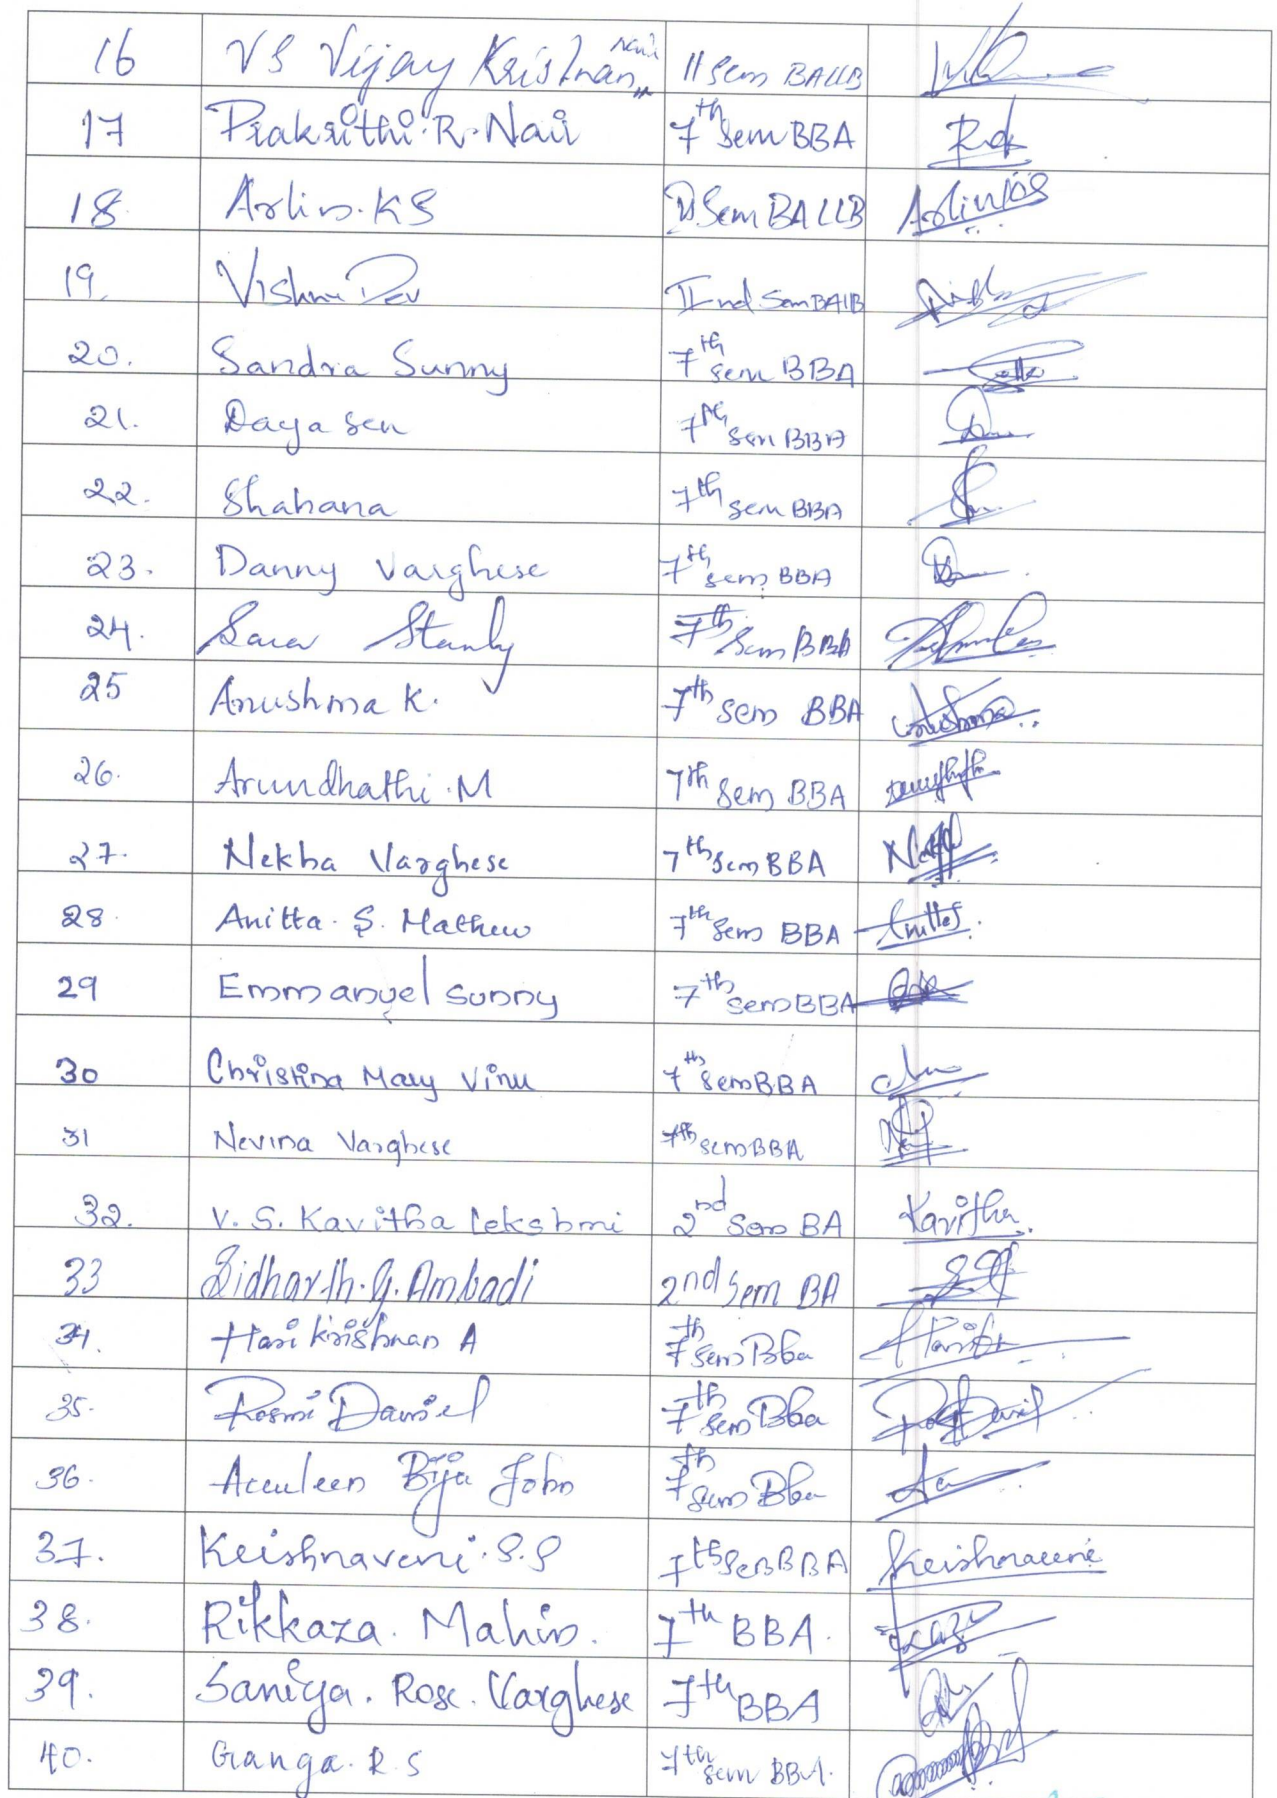 16 VS Vijay Krishnan Nair II Sem BALLB
17 Prakrithi.R.Nair 7th Sem BBA
18. Arlin.KS Sem BALLB Arlin
19. Vishnu Dev IInd Sem BALLB
20. Sandra Sunny 7th sem BBA
21. Daya sen 7th sem BBA
22. Shahana 7th sem BBA
23. Danny Varghese 7th sem BBA
24. Sara Stanly 7th Sem BBA
25 Anushma K. 7th sem BBA
26. Arundhathi.M 7th Sem BBA
27. Nekha Varghese 7th sem BBA
28. Anitta. S. Mathew 7th Sem BBA
29 Emmanuel Sunny 7th sem BBA
30 Christina Mary Vinu 7th Sem BBA
31 Nevina Varghese 7th sem BBA
32. V. S. Kavitha Lekshmi 2nd Sem BA Kavitha.
33 Sidharth.G.Ambadi 2nd Sem BA
34. Hari Krishnan A 7th Sem Bba
35. Rosmi Daniel 7th Sem Bba
36. Bija John 7th Sem Bba
37. Krishnaveni.S.S 7th Sem BBA Krishnaveni
38. Rikkaza. Mahin. 7th BBA.
39. Saniya. Rose. Varghese 7th BBA
40. Ganga. R.S 7th Sem BBA.